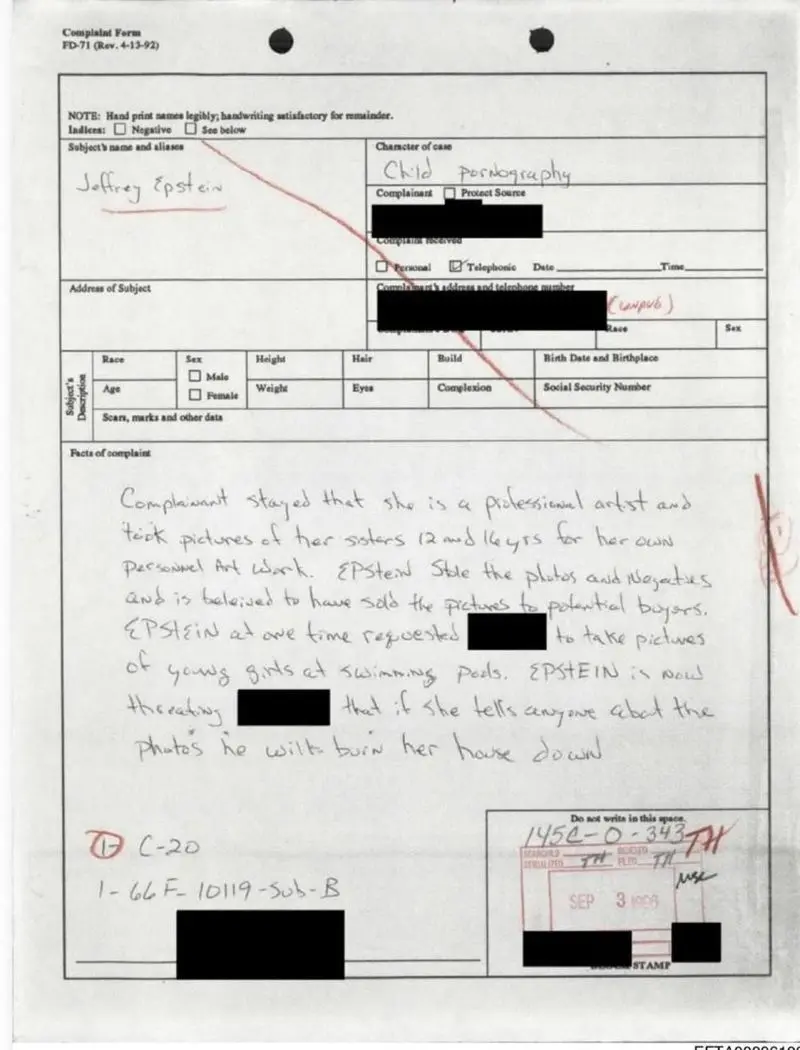 Complaint Form
FD-71 (Rev. 4-13-92)
NOTE: Hand print names legibly; handwriting satisfactory for remainder.
Indices: Negative See below
Subject's name and aliases
Jeffrey Epstein
Character of case
Child pornography
Complainant Protect Source
Complaint received
Personal Telephonic Date Time
Address of Subject
Complainant's address and telephone number
(unpub)
Race
Sex
Subject's Description
Race
Sex
Male
Female
Height
Hair
Build
Birth Date and Birthplace
Age
Weight
Eyes
Complexion
Social Security Number
Scars, marks and other data
Facts of complaint
Complainant stayed that she is a professional artist and
took pictures of her sisters 12 and 16 yrs for her own
personnel Art work. EPStein Stole the photos and Negatives
and is beleived to have sold the pictures to potential buyers.
EPSTEIN at one time requested to take pictures
of young girls at swimming pools. EPSTEIN is now
threating that if she tells anyone abot the
photo's he will burn her house down
1- C-20
1- 66F-10119-Sub-B
Do not write in this space.
145C-0-343
TH
SEARCHED
SERIALIZED TH FILED TH
SEP 3 1996
STAMP